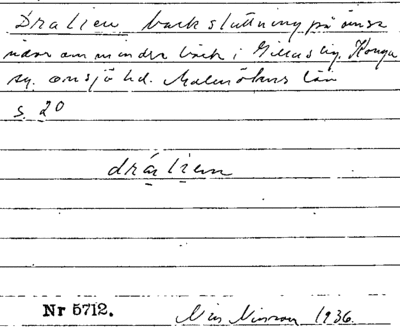 Dralien backsluttning på ömse
sidor om mindre bäck i Gillastig. Konga
sn. Onsjö hd. Malmöhus län
s. 20
drálien
Nr 5712.
Nils Nilsson 1936.